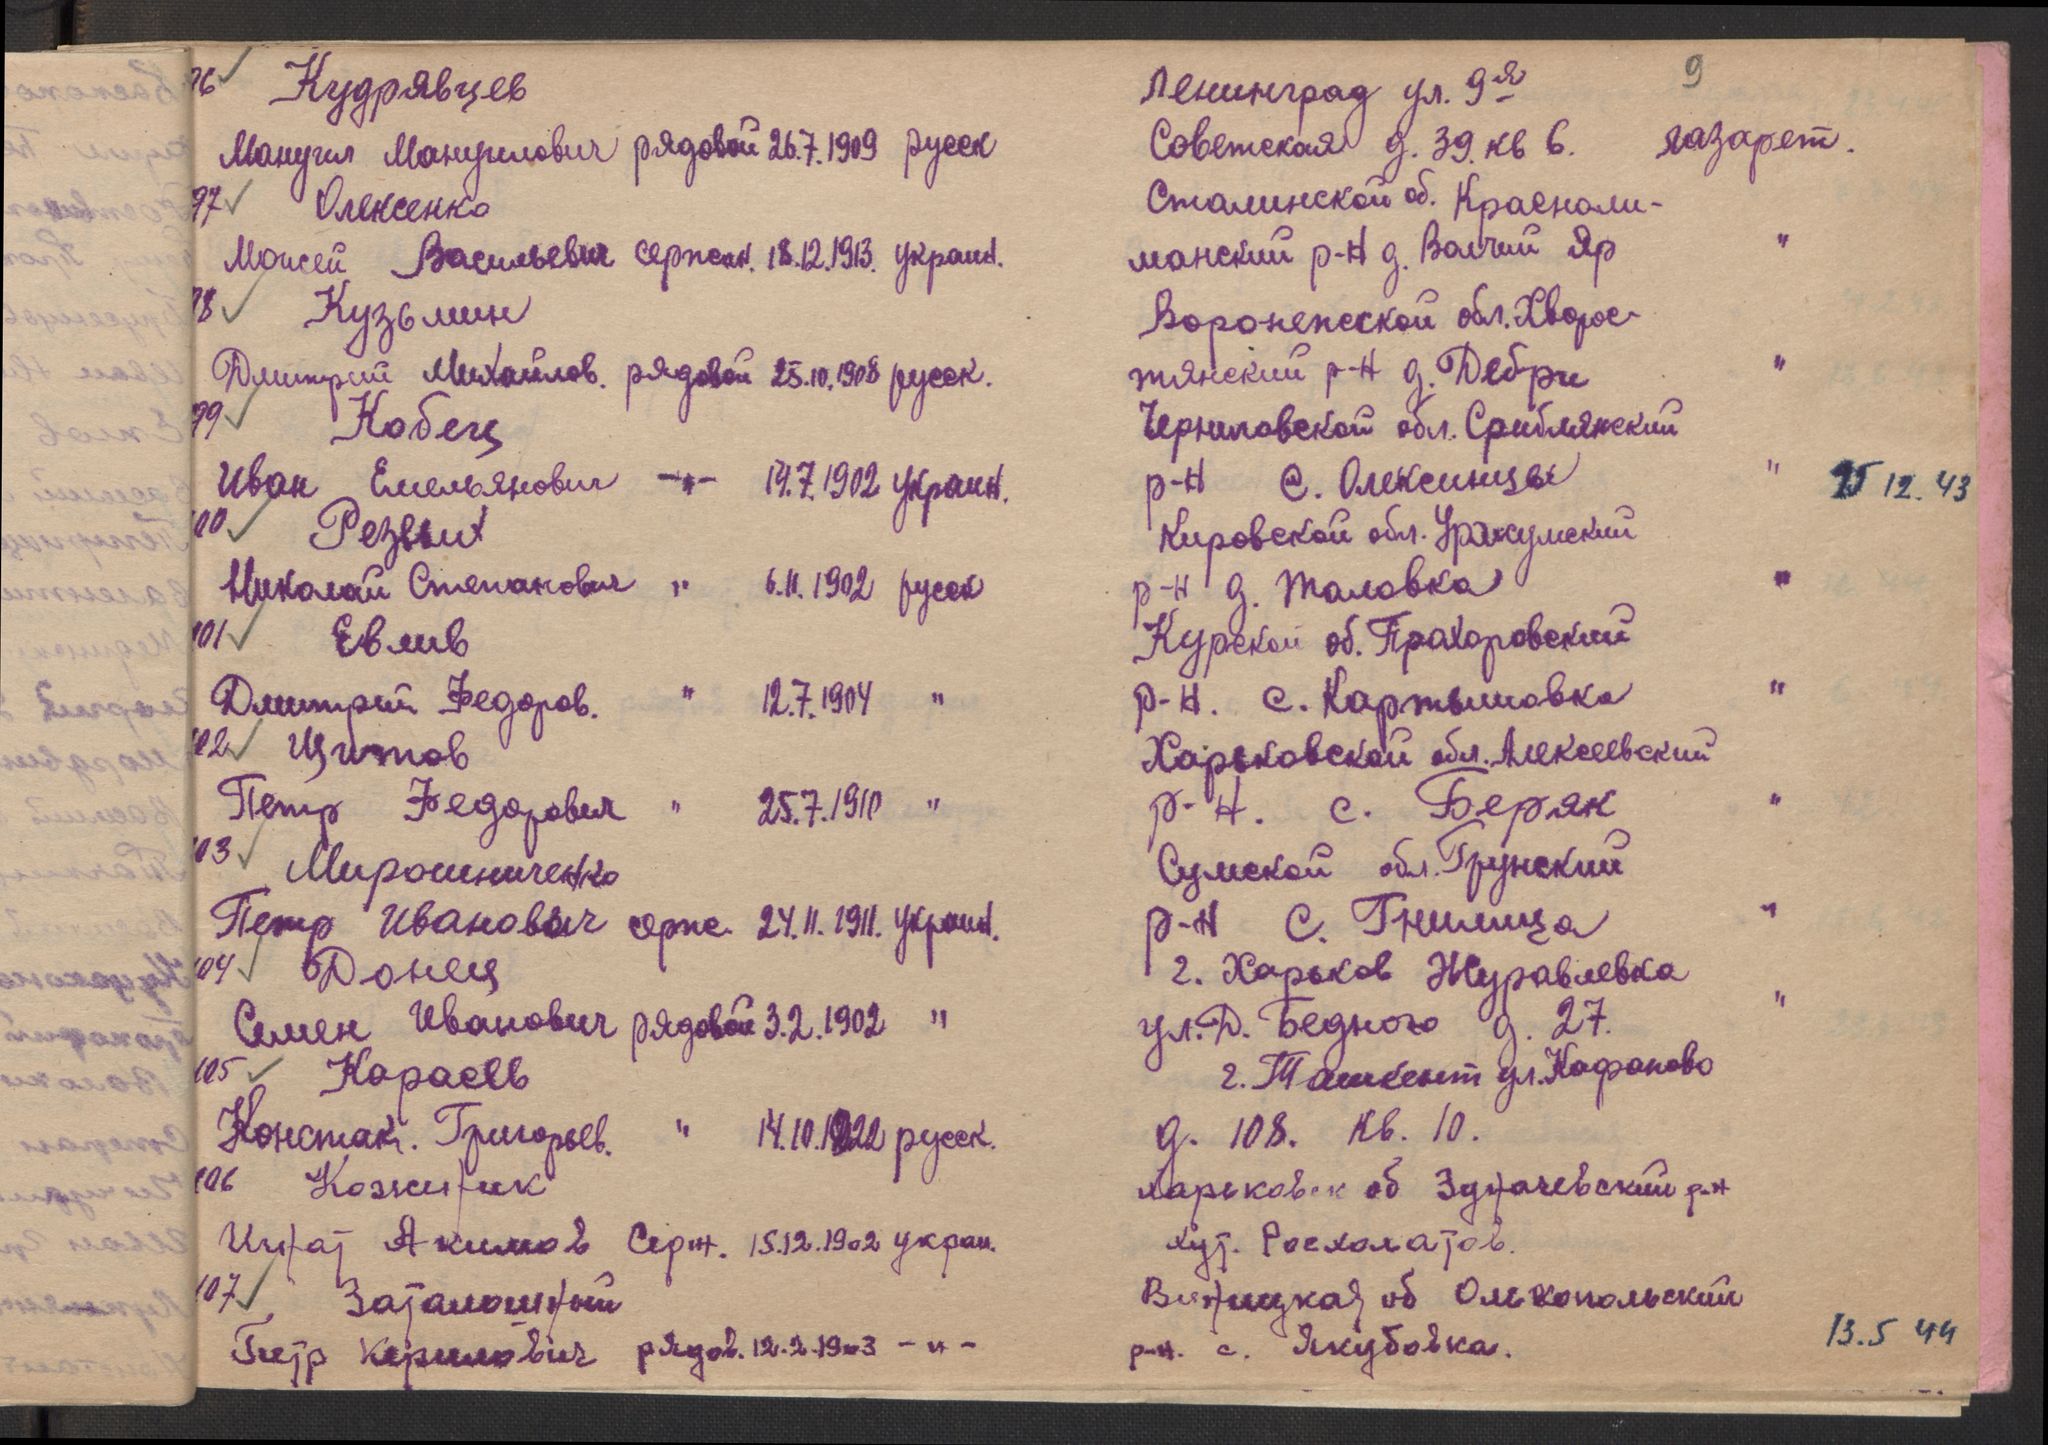 9
96 Кудрявцев Ленинград ул. 9я
Мануил Мануилович рядовой 26.7.1909 русск Советская д. 39. кв 6. лазарет.
97 Олексенко Сталинской об. Красноли-
Моисей Васильевич сержан. 18.12.1913. украин. манский р-н д. Волчий Яр "
98 Кузьмин Воронежской обл. Хворос-
Дмитрий Михайлов. рядовой 25.10.1908 русск. тянский р-н д. Дебри "
99 Кобец Черниговской обл. Сриблянский
Иван Емельянович -"- 14.7.1902 украин. р-н с. Олексинцы " 25 12. 43
100 Резвых Кировской обл. Уржумский
Николай Степанович " 6.11.1902 русск р-н д. Таловка "
101 Евлив Курской об. Прохоровский
Дмитрий Федоров. " 12.7.1904 " р-н. с. Картышовка "
102 Щитов Харьковской обл. Алексеевский
Петр Федорович " 25.7.1910 " р-н. с. Беряк "
103 Мирошниченко Сумской обл. Грунский
Петр Иванович серж. 24.11.1911. украин. р-н с. Гнилица "
104 Донец г. Харьков Журавлевка
Семен Иванович рядовой 3.2.1902 " ул. Д. Бедного д. 27. "
105 Караев г. Ташкент ул. Кафаново
Констан. Григорьев. " 14.10.1922 русск. д. 108. кв. 10.
106 Кожиник харьковск об Зуначевский р-н
Игнат Акимов Серж. 15.12.1902 украи. хут. Росхоматов.
107 Заталошный Винницкая об Ольгопольский
Петр Кирилович рядов. 12.2.1903 -"- р-н. с. Якубовка. 13.5 44